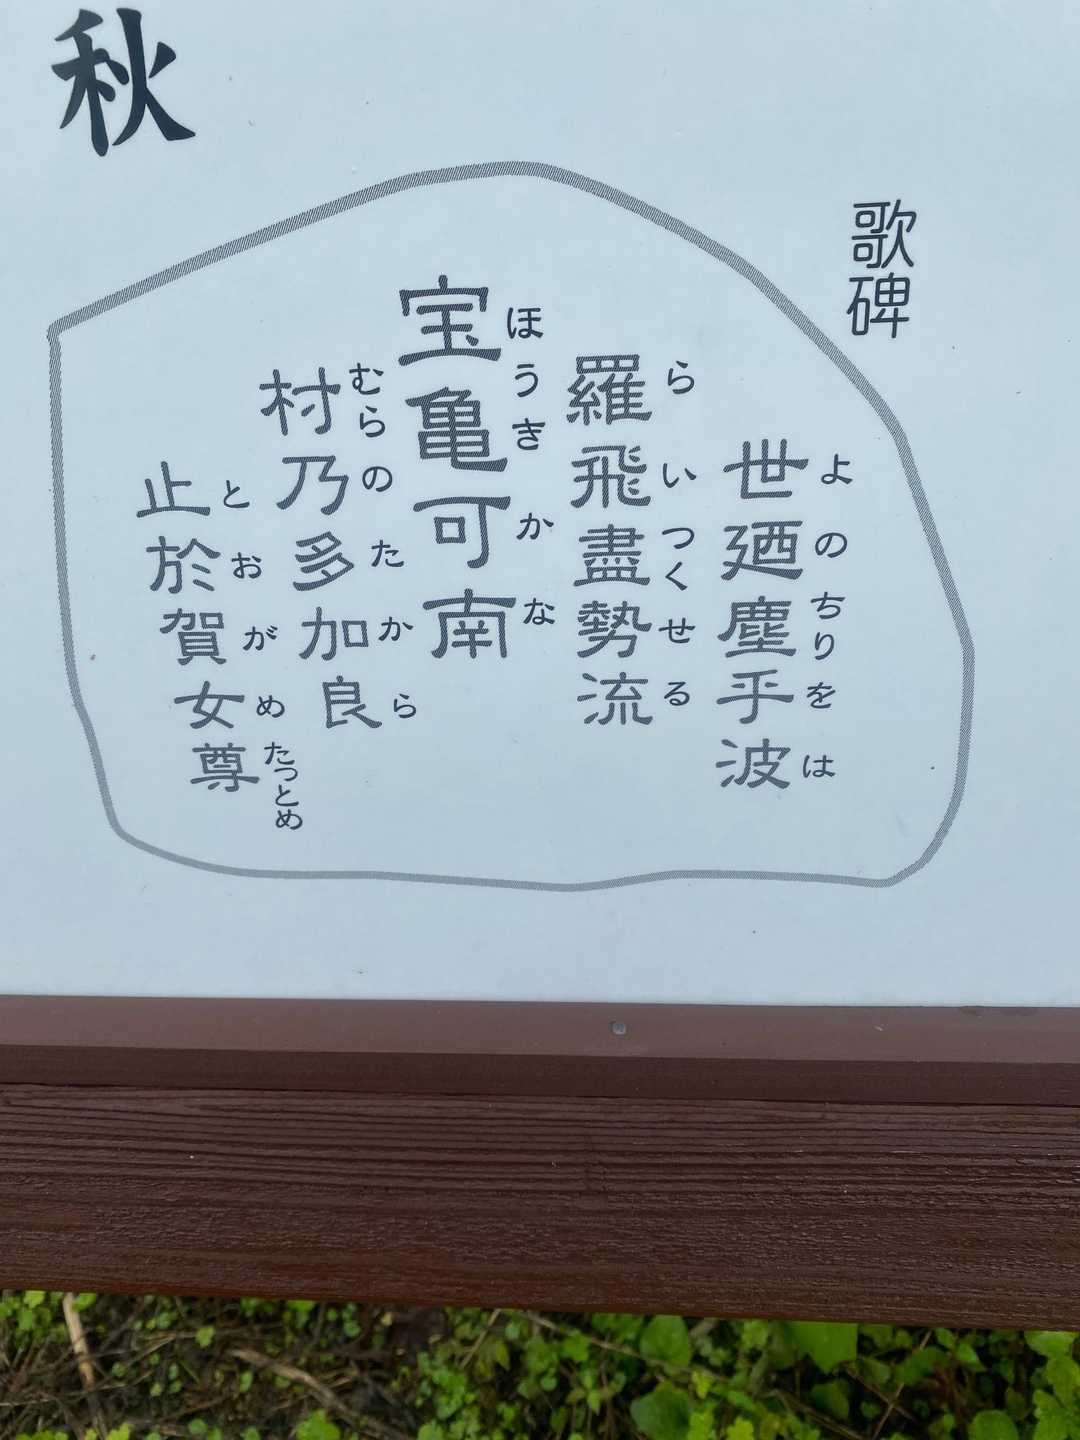 歌碑
世廼塵乎波
よのちりをは
羅飛盡勢流
らいつくせる
宝亀可南
ほうきかな
村乃多加良
むらのたから
止於賀女尊
とおがめたっとめ
秋